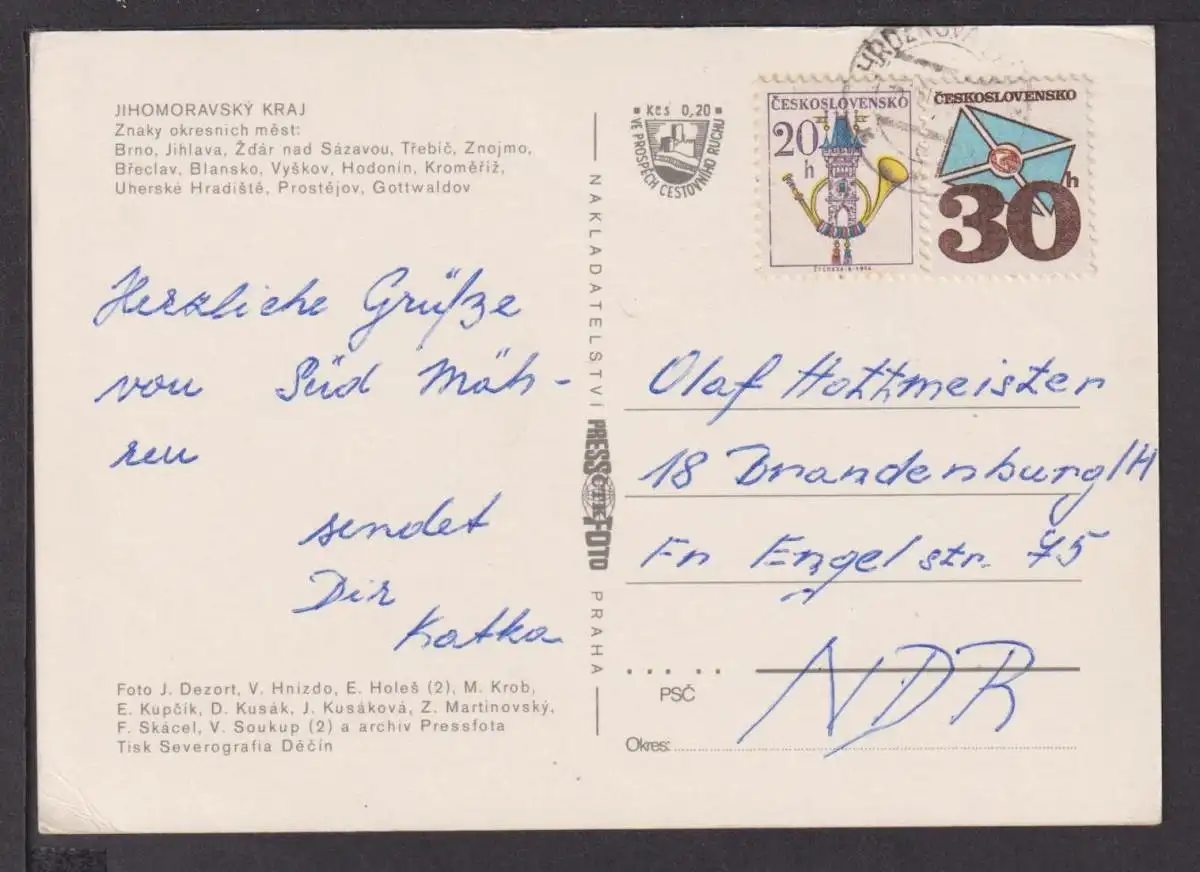 JIHOMORAVSKÝ KRAJ
Znaky okresních měst:
Brno, Jihlava, Žďár nad Sázavou, Třebíč, Znojmo,
Břeclav, Blansko, Vyškov, Hodonín, Kroměříž,
Uherské Hradiště, Prostějov, Gottwaldov
Herzliche Grüße
von Süd Mäh-
ren
sendet
Dir
Katka
Foto J. Dezort, V. Hnízdo, E. Holeš (2), M. Krob,
E. Kupčík, D. Kusák, J. Kusáková, Z. Martinovský,
F. Skácel, V. Soukup (2) a archiv Pressfota
Tisk Severografia Děčín
NAKLADATELSTVÍ PRESSFOTO PRAHA
ČTK
Kčs 0,20
VE PROSPĚCH CESTOVNÍHO RUCHU
ČESKOSLOVENSKO
20
h
ČESKOSLOVENSKO
30
h
Olaf Hottmeister
18 Brandenburg/H
Fr Engelstr. 75
NDR
PSČ
Okres: